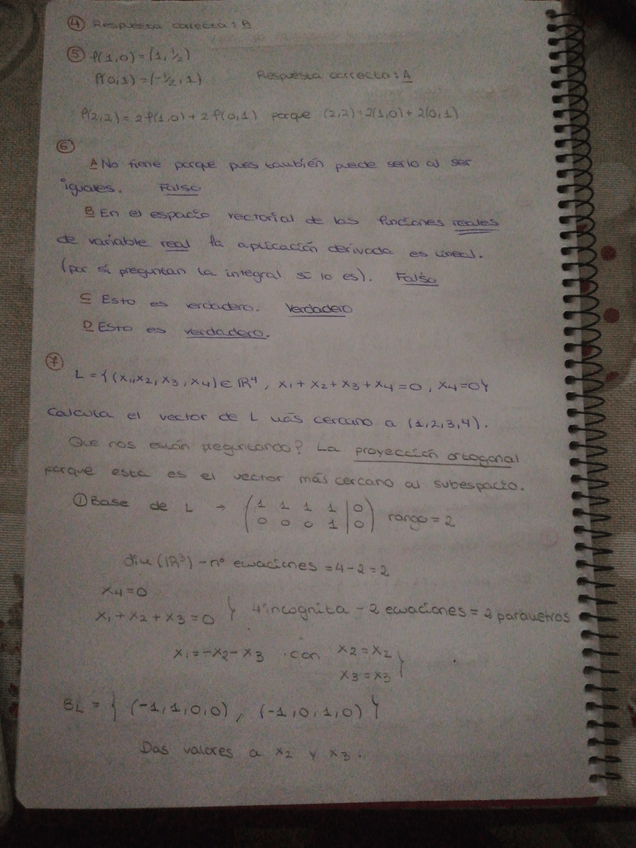 ④ Respuesta correcta: B
⑤ f(1,0) = (1, 1/2)
f(0,1) = (-1/2, 1) Respuesta correcta: A
f(2,2) = 2f(1,0) + 2f(0,1) porque (2,2) = 2(1,0) + 2(0,1)
⑥
A No tiene porque pues también puede serlo al ser
iguales. Falso
B En el espacio vectorial de las funciones reales
de variable real la aplicación derivada es lineal.
(por si preguntan la integral sí lo es). Falso
C Esto es verdadero. Verdadero
D Esto es verdadero.
⑦
L = {(x₁,x₂,x₃,x₄) ∈ ℝ⁴, x₁ + x₂ + x₃ + x₄ = 0, x₄ = 0}
Calcula el vector de L más cercano a (1,2,3,4).
Que nos están preguntando? La proyección ortogonal
porque esta es el vector más cercano al subespacio.
① Base de L → (1 1 1 1 | 0
0 0 0 1 | 0) rango = 2
dim (ℝ³) - nº ecuaciones = 4 - 2 = 2
x₄ = 0
x₁ + x₂ + x₃ = 0 } 4 incognita - 2 ecuaciones = 2 parametros
x₁ = -x₂ - x₃ con x₂ = x₂
x₃ = x₃ }
BL = { (-1,1,0,0), (-1,0,1,0) }
Das valores a x₂ y x₃.